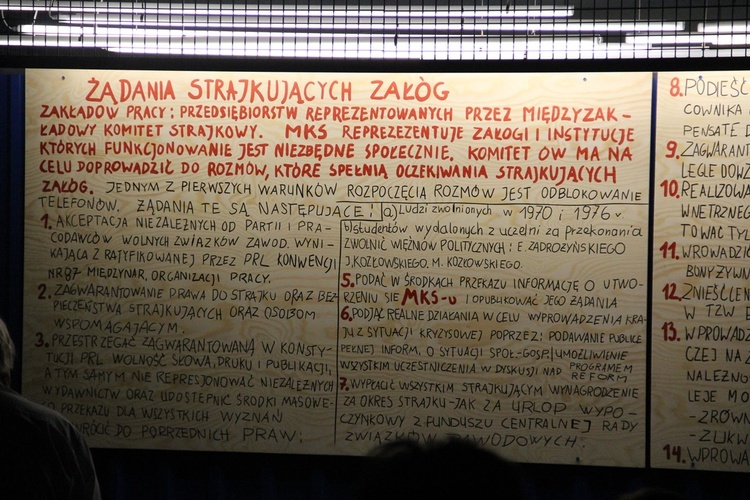 ŻĄDANIA STRAJKUJĄCYCH ZAŁÓG
ZAKŁADÓW PRACY i PRZEDSIĘBIORSTW REPREZENTOWANYCH PRZEZ MIĘDZYZAK-
ŁADOWY KOMITET STRAJKOWY. MKS REPREZEZENTUJE ZAŁOGI I INSTYTUCJE
KTÓRYCH FUNKCJONOWANIE JEST NIEZBĘDNE SPOŁECZNIE. KOMITET ÓW MA NA
CELU DOPROWADZIĆ DO ROZMÓW, KTÓRE SPEŁNIĄ OCZEKIWANIA STRAJKUJĄCYCH
ZAŁÓG. JEDNYM Z PIERWSZYCH WARUNKÓW ROZPOCZĘCIA ROZMÓW JEST ODBLOKOWANIE
TELEFONÓW. ŻĄDANIA TE SĄ NASTĘPUJĄCE:
1. AKCEPTACJA NIEZALEŻNYCH OD PARTII I PRA-
CODAWCÓW WOLNYCH ZWIĄZKÓW ZAWOD. WYNI-
KAJĄCA Z RATYFIKOWANEJ PRZEZ PRL KONWENCJI
NR 87 MIĘDZYNAR. ORGANIZACJI PRACY.
2. ZAGWARANTOWANIE PRAWA DO STRAJKU ORAZ BEZ-
PIECZEŃSTWA STRAJKUJĄCYCH ORAZ OSOBOM
WSPOMAGAJĄCYM.
3. PRZESTRZEGAĆ ZAGWARANTOWANĄ W KONSTY-
TUCJI PRL WOLNOŚĆ SŁOWA, DRUKU I PUBLIKACJI,
A TYM SAMYM NIE REPRESJONOWAĆ NIEZALEŻNYCH
WYDAWNICTW ORAZ UDOSTĘPNIĆ ŚRODKI MASOWE-
O PRZEKAZU DLA WSZYSTKICH WYZNAŃ
RÓCIĆ DO POPRZEDNICH PRAW:
a) Ludzi zwolnionych w 1970 i 1976 r.
b) studentów wydalonych z uczelni za przekonania
ZWOLNIĆ WIĘŹNIÓW POLITYCZNYCH: E. ZADROŻYŃSKIEGO
J. KOZŁOWSKIEGO, M. KOZŁOWSKIEGO.
5. PODAĆ W ŚRODKACH PRZEKAZU INFORMACJĘ O UTWO-
RZENIU SIĘ MKS-u I OPUBLIKOWAĆ JEGO ŻĄDANIA
6. PODJĄĆ REALNE DZIAŁANIA W CELU WYPROWADZENIA KRA-
JU Z SYTUACJI KRYZYSOWEJ POPRZEZ: PODAWANIE PUBLICE
PEŁNEJ INFORM. O SYTUACJI SPOŁ-GOSP. UMOŻLIWIENIE
WSZYSTKIM UCZESTNICZENIA W DYSKUSJI NAD PROGRAMEM
REFORM
7. WYPŁACIĆ WSZYSTKIM STRAJKUJĄCYM WYNAGRODZENIE
ZA OKRES STRAJKU-JAK ZA URLOP WYPO-
CZYNKOWY Z FUNDUSZU CENTRALNEJ RADY
ZWIĄZKÓW ZAWODOWYCH.
8. PODIEŚĆ
COWNIKA
PENSATE
9. ZAGWARANT
LEGLE
10. REALIZOWA
WNETRZNEG
TOWAC TYL
11. WROWADZIC
BONY ŻYWN
12. ZNIEŚĆ
W TZW
13. WPROWADZ
CZEJ NA
NALEŻN
LEJE MO
- ZRÓWN
- ZLIKW
14. WPROWA